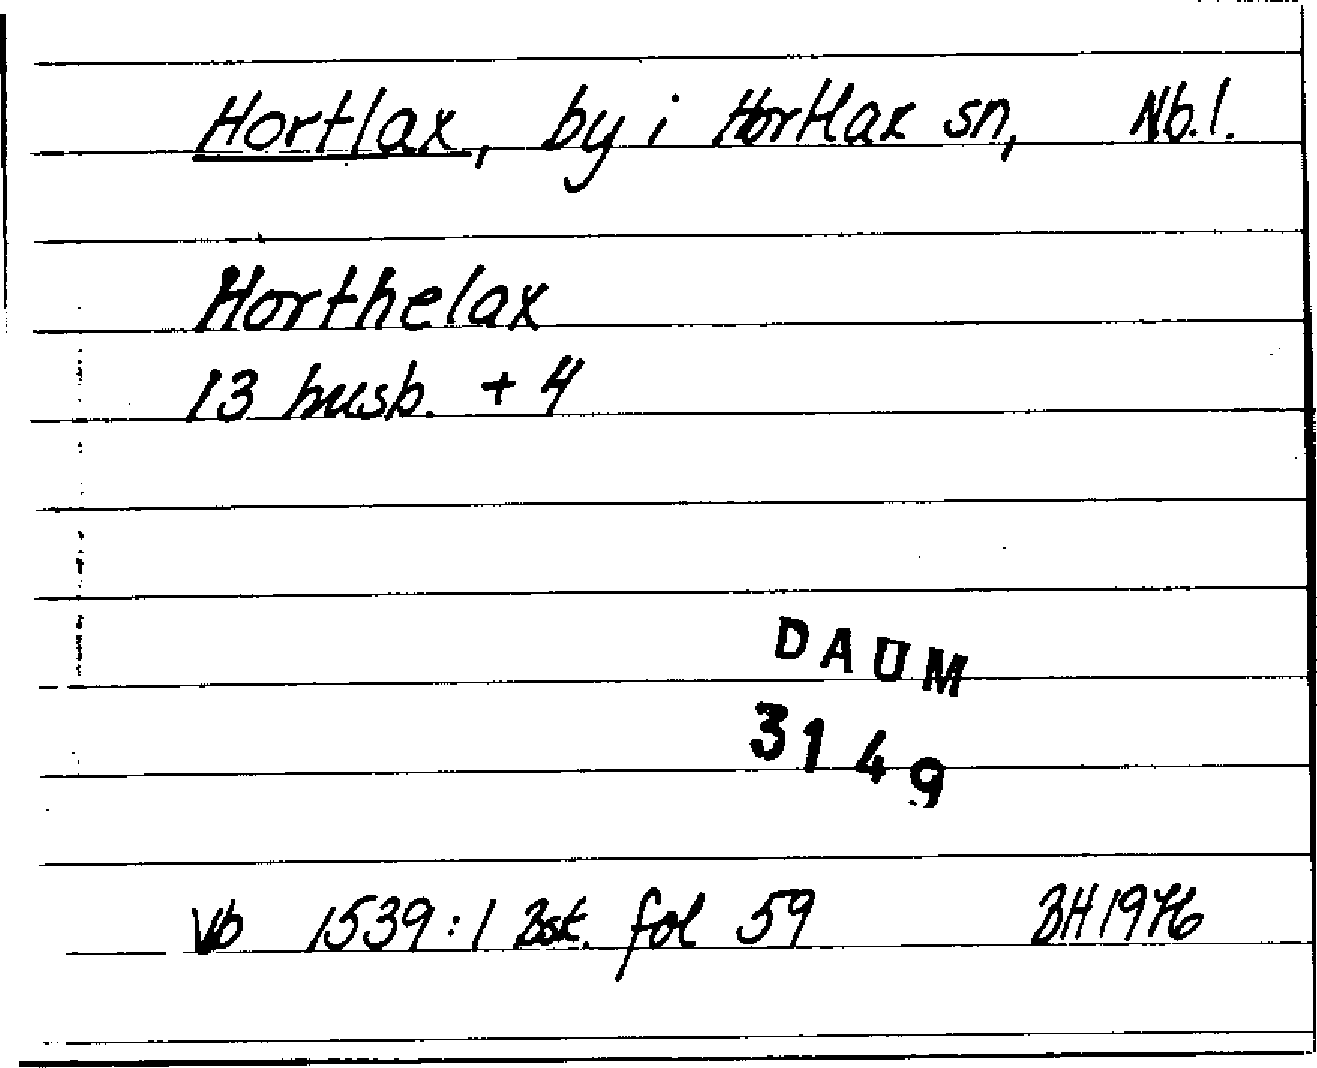 Hortlax, by i Hortlax sn, Nb.l.
Horthelax
13 husb. + 4
DAUM
3149
Vb 1539:1 Bst. fol 59 BH 1976